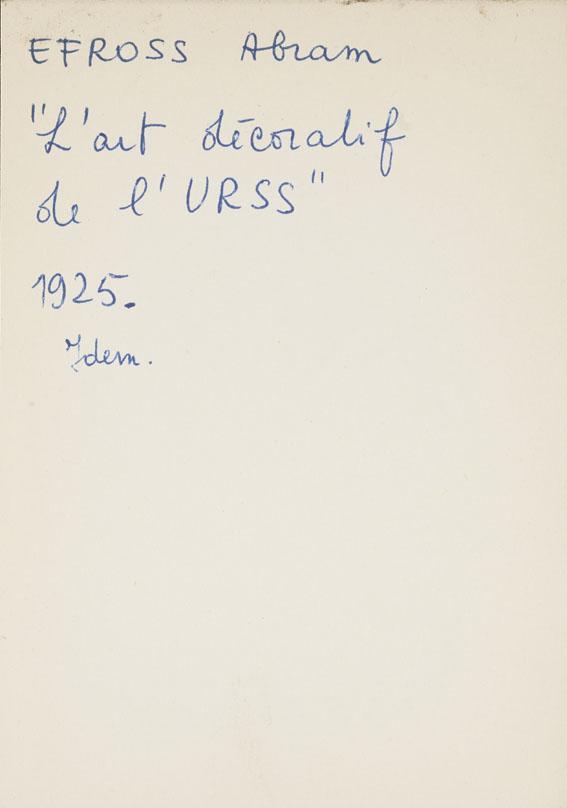 EFROSS Abram
"L'art décoratif
de l'URSS"
1925.
Idem.